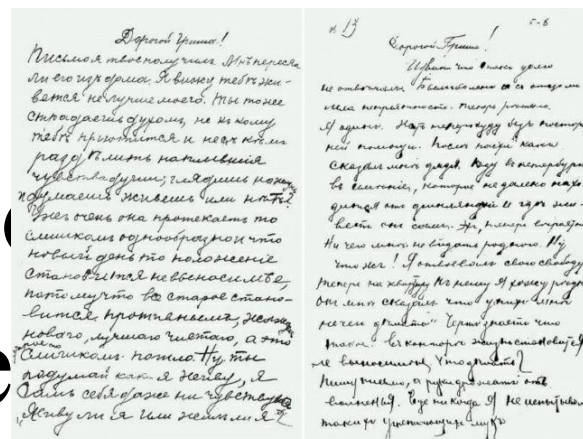 Дорогой Гриша!
Письмо я твое получил. Мнѣ переслали
ли его изъ дома. Я вижу тебѣ жи-
вется не лучше моего. Ты тоже
страдаешь духомъ, не къ кому
тебѣ приютиться и не съ кѣмъ
раздѣлить наплывшія
чувства души; глядишь на жизнь
и думаешь: живешь или нѣтъ?
Ужъ очень она протекаетъ то
слишкомъ однообразно и что
новый день, то положеніе
становится невыносимѣе,
потому что все старое стано-
вится противнымъ, жаждешь
новаго, лучшаго, чистаго, а это
слишкомъ пошло. Ну ты
подумай, какъ я живу, я
самъ себя даже не чувствую.
„Живу ли я, или жилъ ли я?"
№ 13
5-8
Дорогой Гриша!
Извини, что такъ долго
не отвѣчалъ.
непріятность.
Я одинъ.
ней помощи.
сказалъ мнѣ дядя. Ѣду въ Петербургъ
не далеко нахо-
дится отъ Финляндіи и гдѣ жи-
ветъ онъ самъ. Эхъ, теперь
Ничего мнѣ не видать родного. Ну
что жъ! Я отвоевалъ свою свободу
Теперь на квартиру къ нему я хожу рѣдко
онъ мнѣ сказалъ, что у нихъ мнѣ
нечего дѣлать. Чортъ знаетъ, что
такое.
не выносимо, что дѣлать?
Пишу письмо, а рука дрожитъ отъ
волненья. Еще никогда я не испытывалъ
такихъ угнетающихъ мукъ